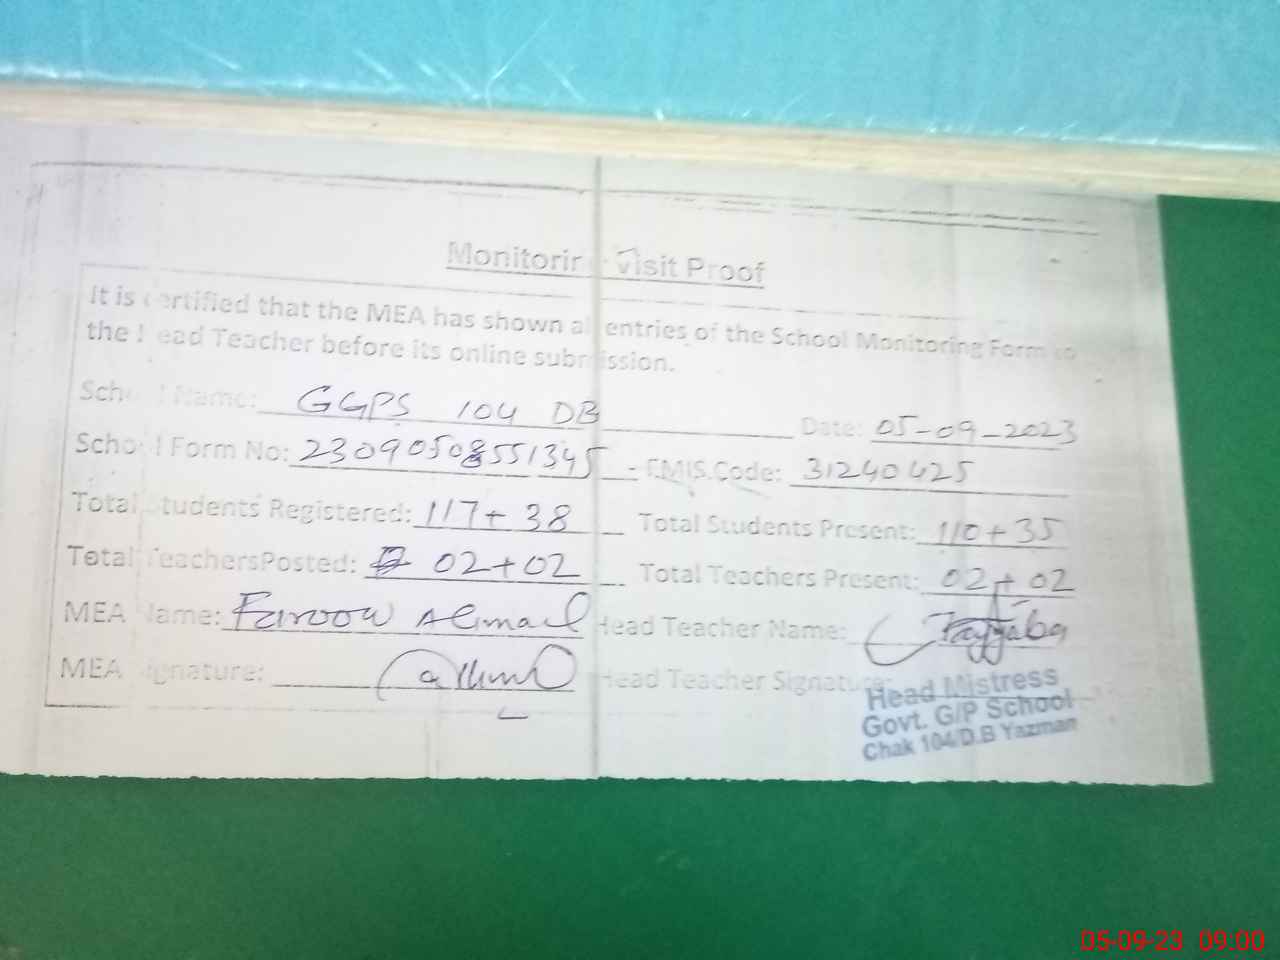 Monitoring Visit Proof
It is certified that the MEA has shown all entries of the School Monitoring Form to
the Head Teacher before its online submission.
School Name: GGPS 104 DB Date: 05-09-2023
School Form No: 23090508551345 EMIS Code: 31240425
Total Students Registered: 117+38 Total Students Present: 110+35
Total TeachersPosted: 02+02 Total Teachers Present: 02+02
MEA Name: Farooq Ahmad Head Teacher Name: Tayyaba
MEA Signature: Head Teacher Signature:
Head Mistress
Govt. G/P School
Chak 104/D.B Yazman
05-09-23 09:00